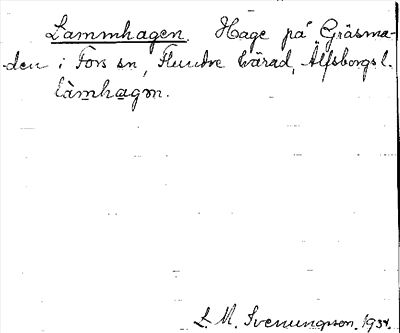 Lammhagen. Hage på Gräsma-
den i Fors sn, Flundre härad, Älfsborgs l.
làmhagən.
L. M. Svenungsson. 1934.